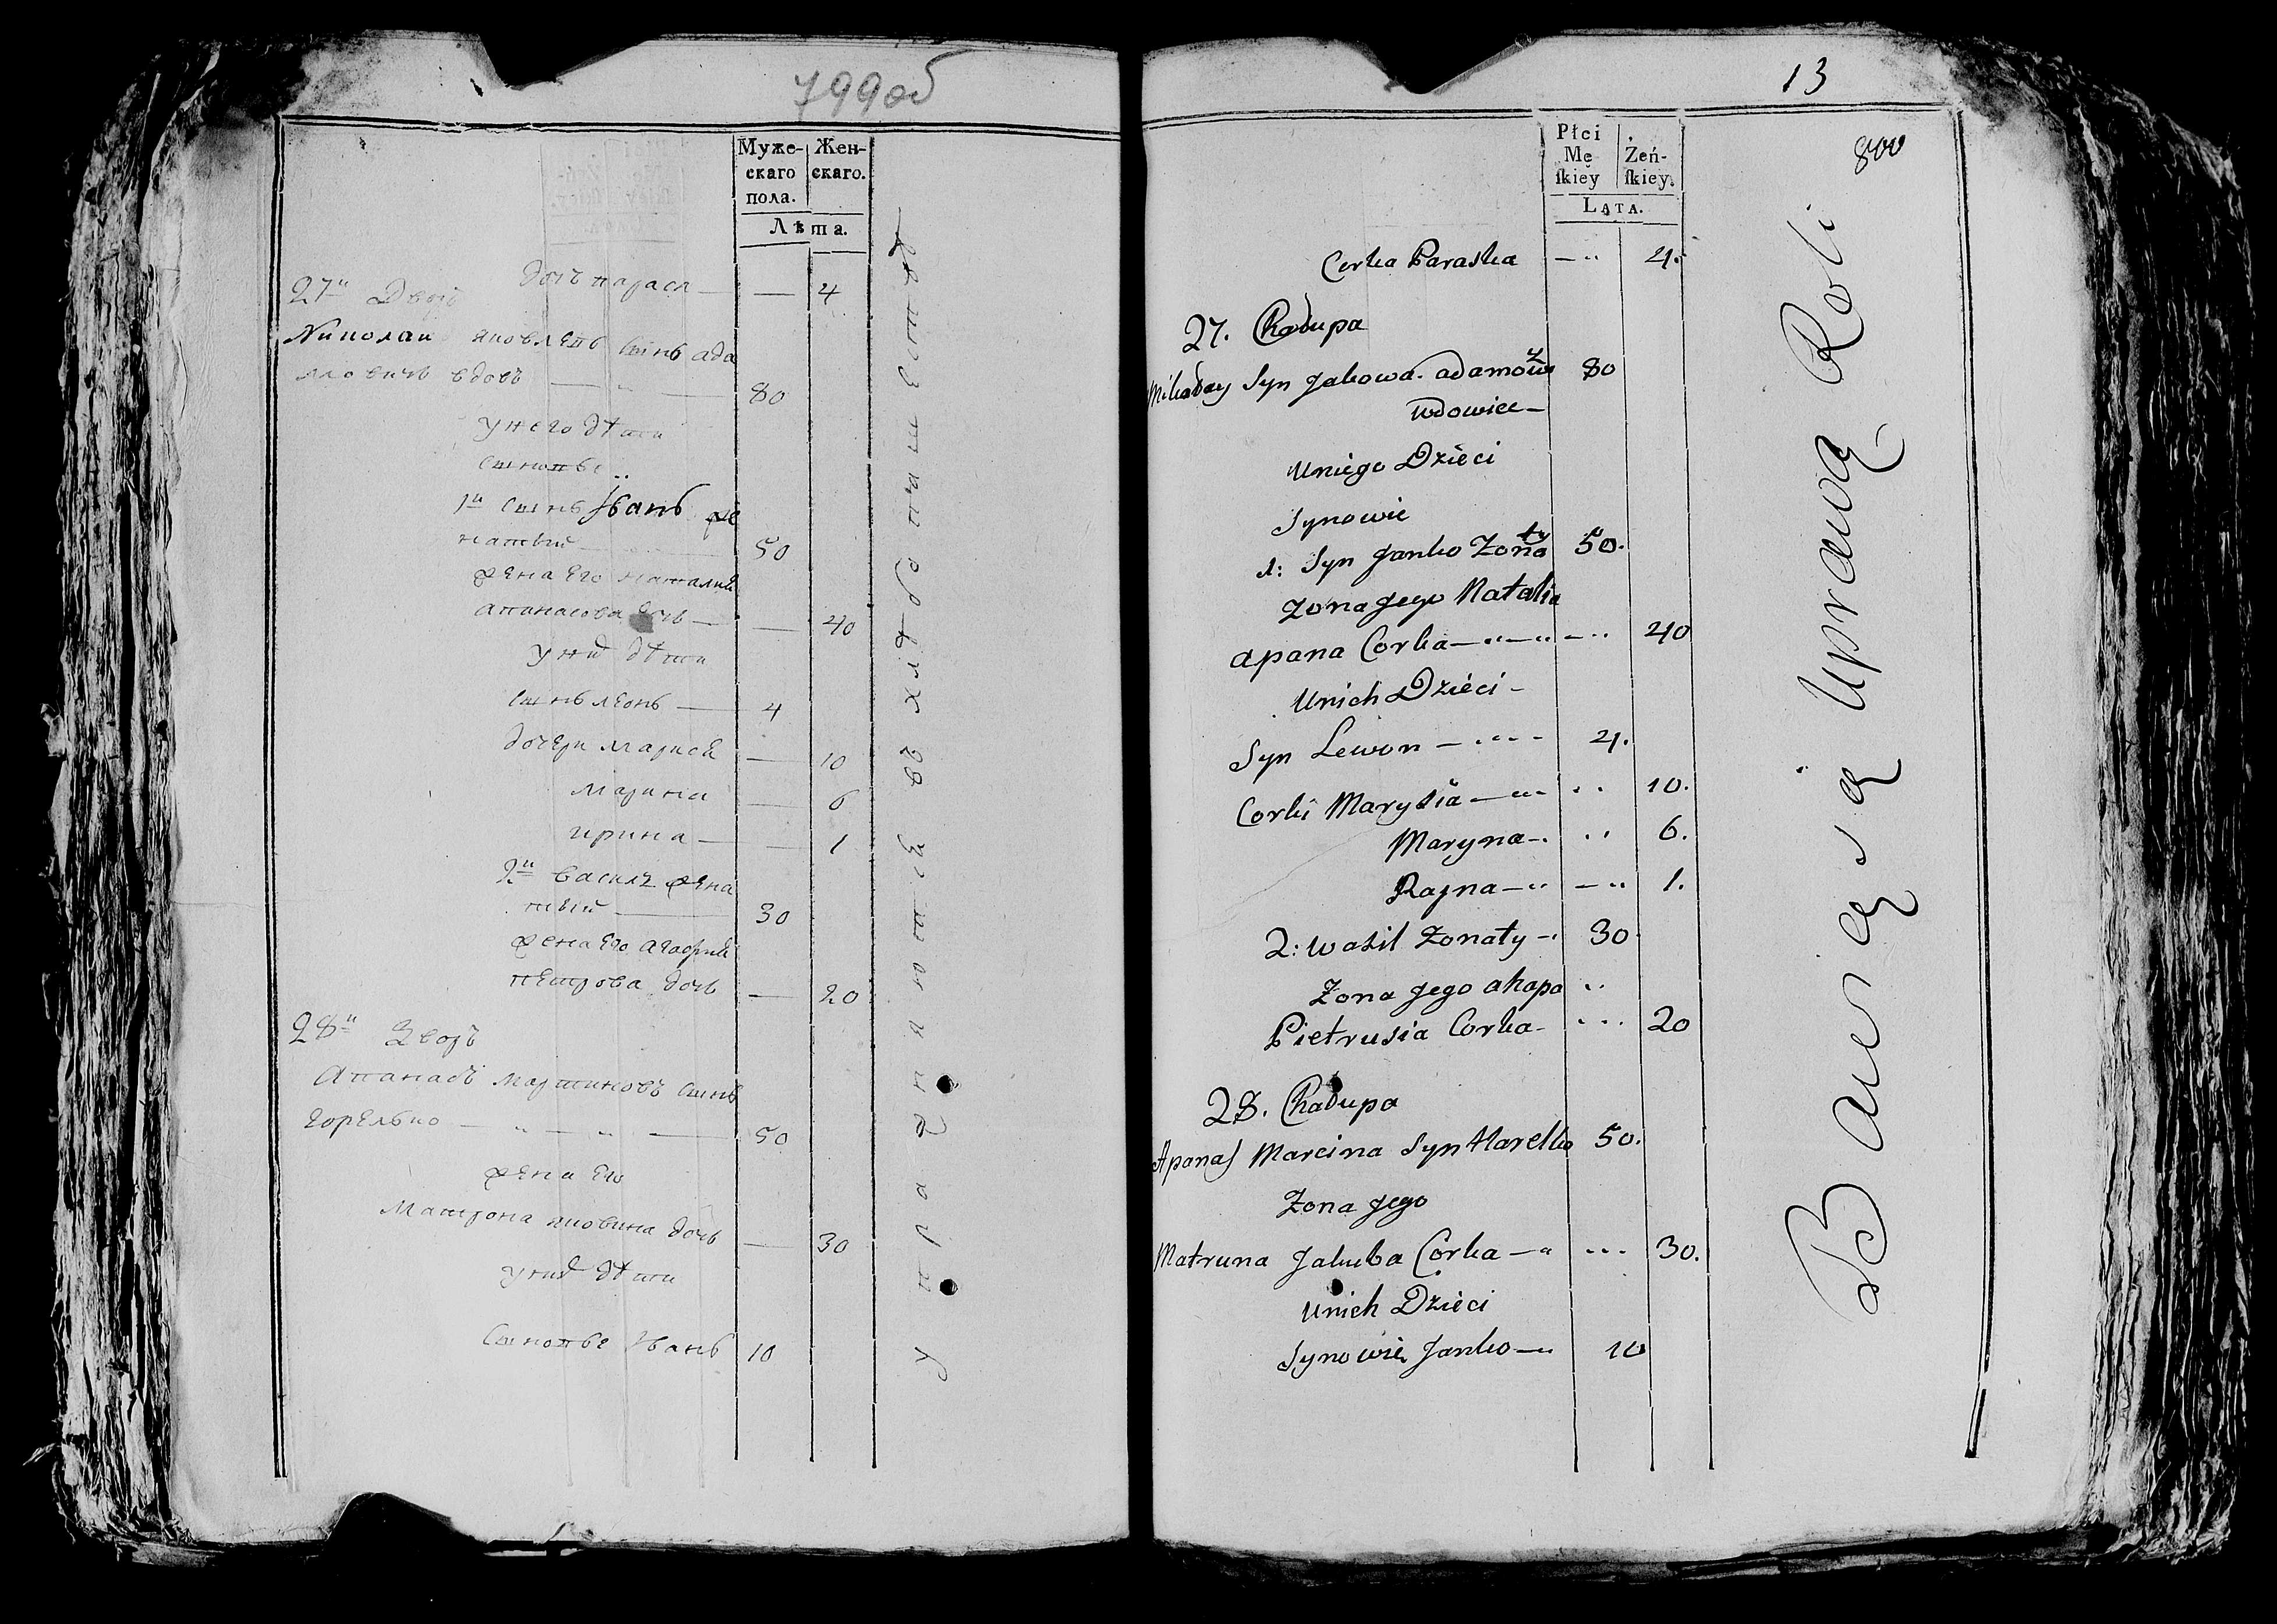 799об
Муже-
скаго
пола.
Жен-
скаго.
Лѣта.
дочъ параск — — 4
27й Дворъ
Николаи яковлевъ сынъ ада
мовичъ вдовъ — 80
у него дѣти
сыновье
1й сынъ Иванъ же
натый — 50
жена его наталия
апанасова дочь — — 40
у них дѣти
сынъ леонъ — 4
дочери марися — 10
марина — 6
ирина — — 1
2й василь жена
тый — 30
жена его агафия
петрова дочь — 20
28й Дворъ
Апанасъ мартиновъ сынъ
горелько — „ — „ — 50
жена его
матрона яковина дочь — 30
у них дѣти
Сыновье Иванъ 10
13
800
Płci
Mę
ſkiey
Żeń-
ſkiey.
LATA.
Corka Paraska — „ 4.
27. Chałupa
Mikołay Syn Jakowa adamowicz 80
wdowiec —
Uniego Dzieci
Synowie
1: Syn Janko Zonaty 50.
Zona Jego Natalia
apana Corka — „ — „ — „ 40
Unich Dzieci —
Syn Lewon — „ „ — 4.
Corki Marysia — „ „ 10.
Maryna — „ 6.
Rajna — „ — „ 1.
2: Wasil Zonaty — 30.
Zona Jego ahapa „
Pietrusia Corka — „ 20
28. Chałupa
Apanas Marcina Syn Harelko 50.
Zona Jego
Matruna Jakuba Corka — „ „ 30.
Unich Dzieci
Synowie Janko — „ 10
Bawią się Uprawą Roli